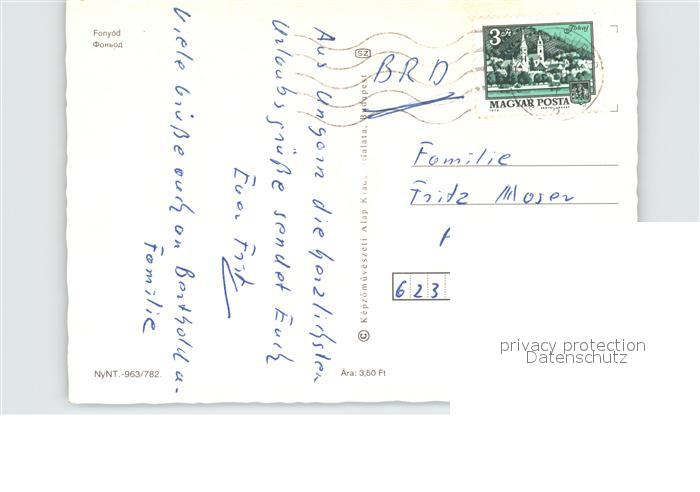 Fonyód
Фоньод
Aus Ungarn die herzlichsten
Urlaubsgrüße sendet Euch
Euer Fritz
Viele Grüße auch an Berthold u.
Familie
SZ
© Képzőművészeti Alap Kiadóvállalata, Budapest
NyNT.-963/782.
Ára: 3,50 Ft
3 Ft
Tokaj
MAGYAR POSTA
BRD
Familie
Fritz Moser
623
privacy protection
Datenschutz